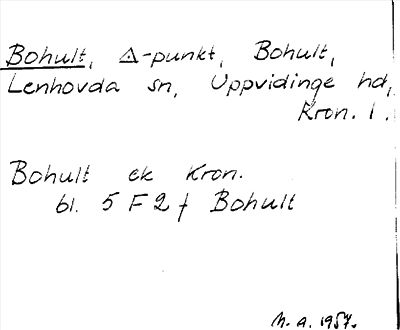 Bohult, ∆-punkt, Bohult,
Lenhovda sn, Uppvidinge hd,
Kron. l.
Bohult ek Kron.
bl. 5 F 2 f Bohult
N. a. 1957.